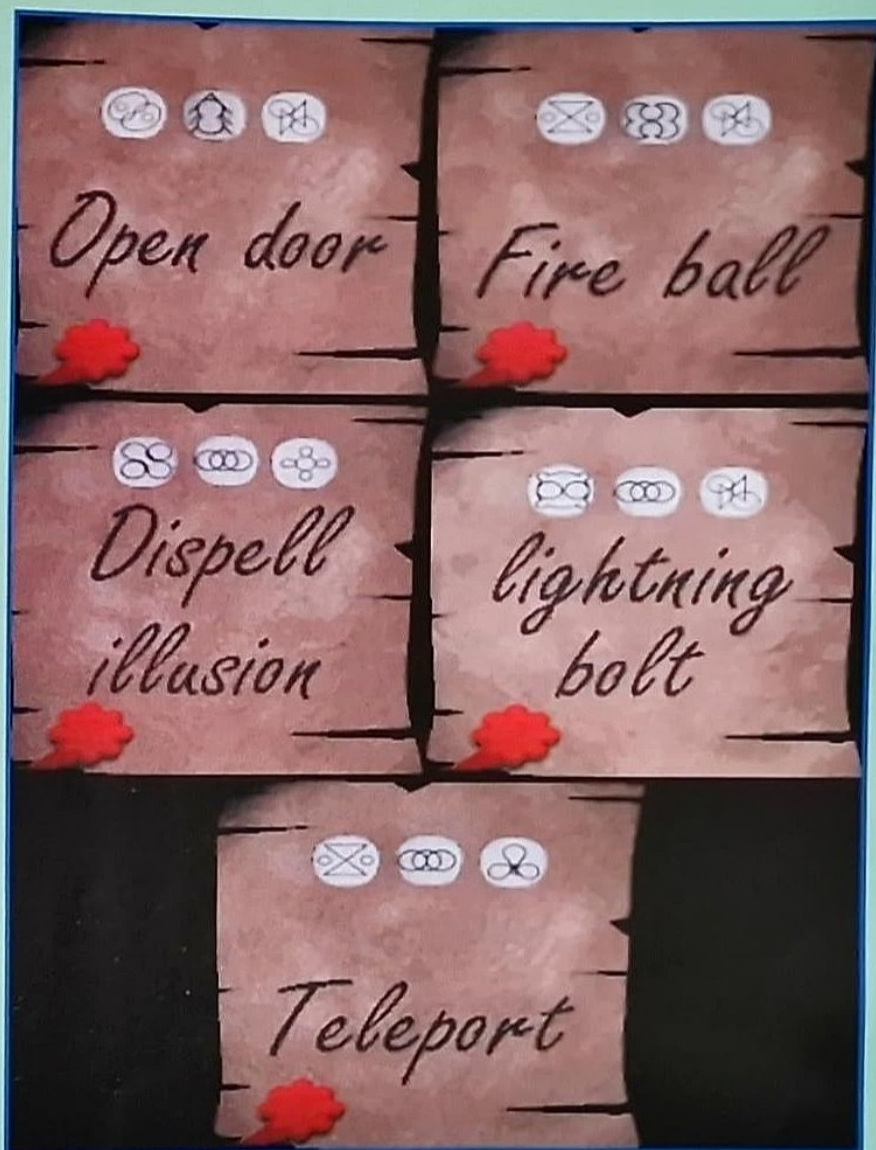 Open door
Fire ball
Dispell
illusion
lightning
bolt
Teleport